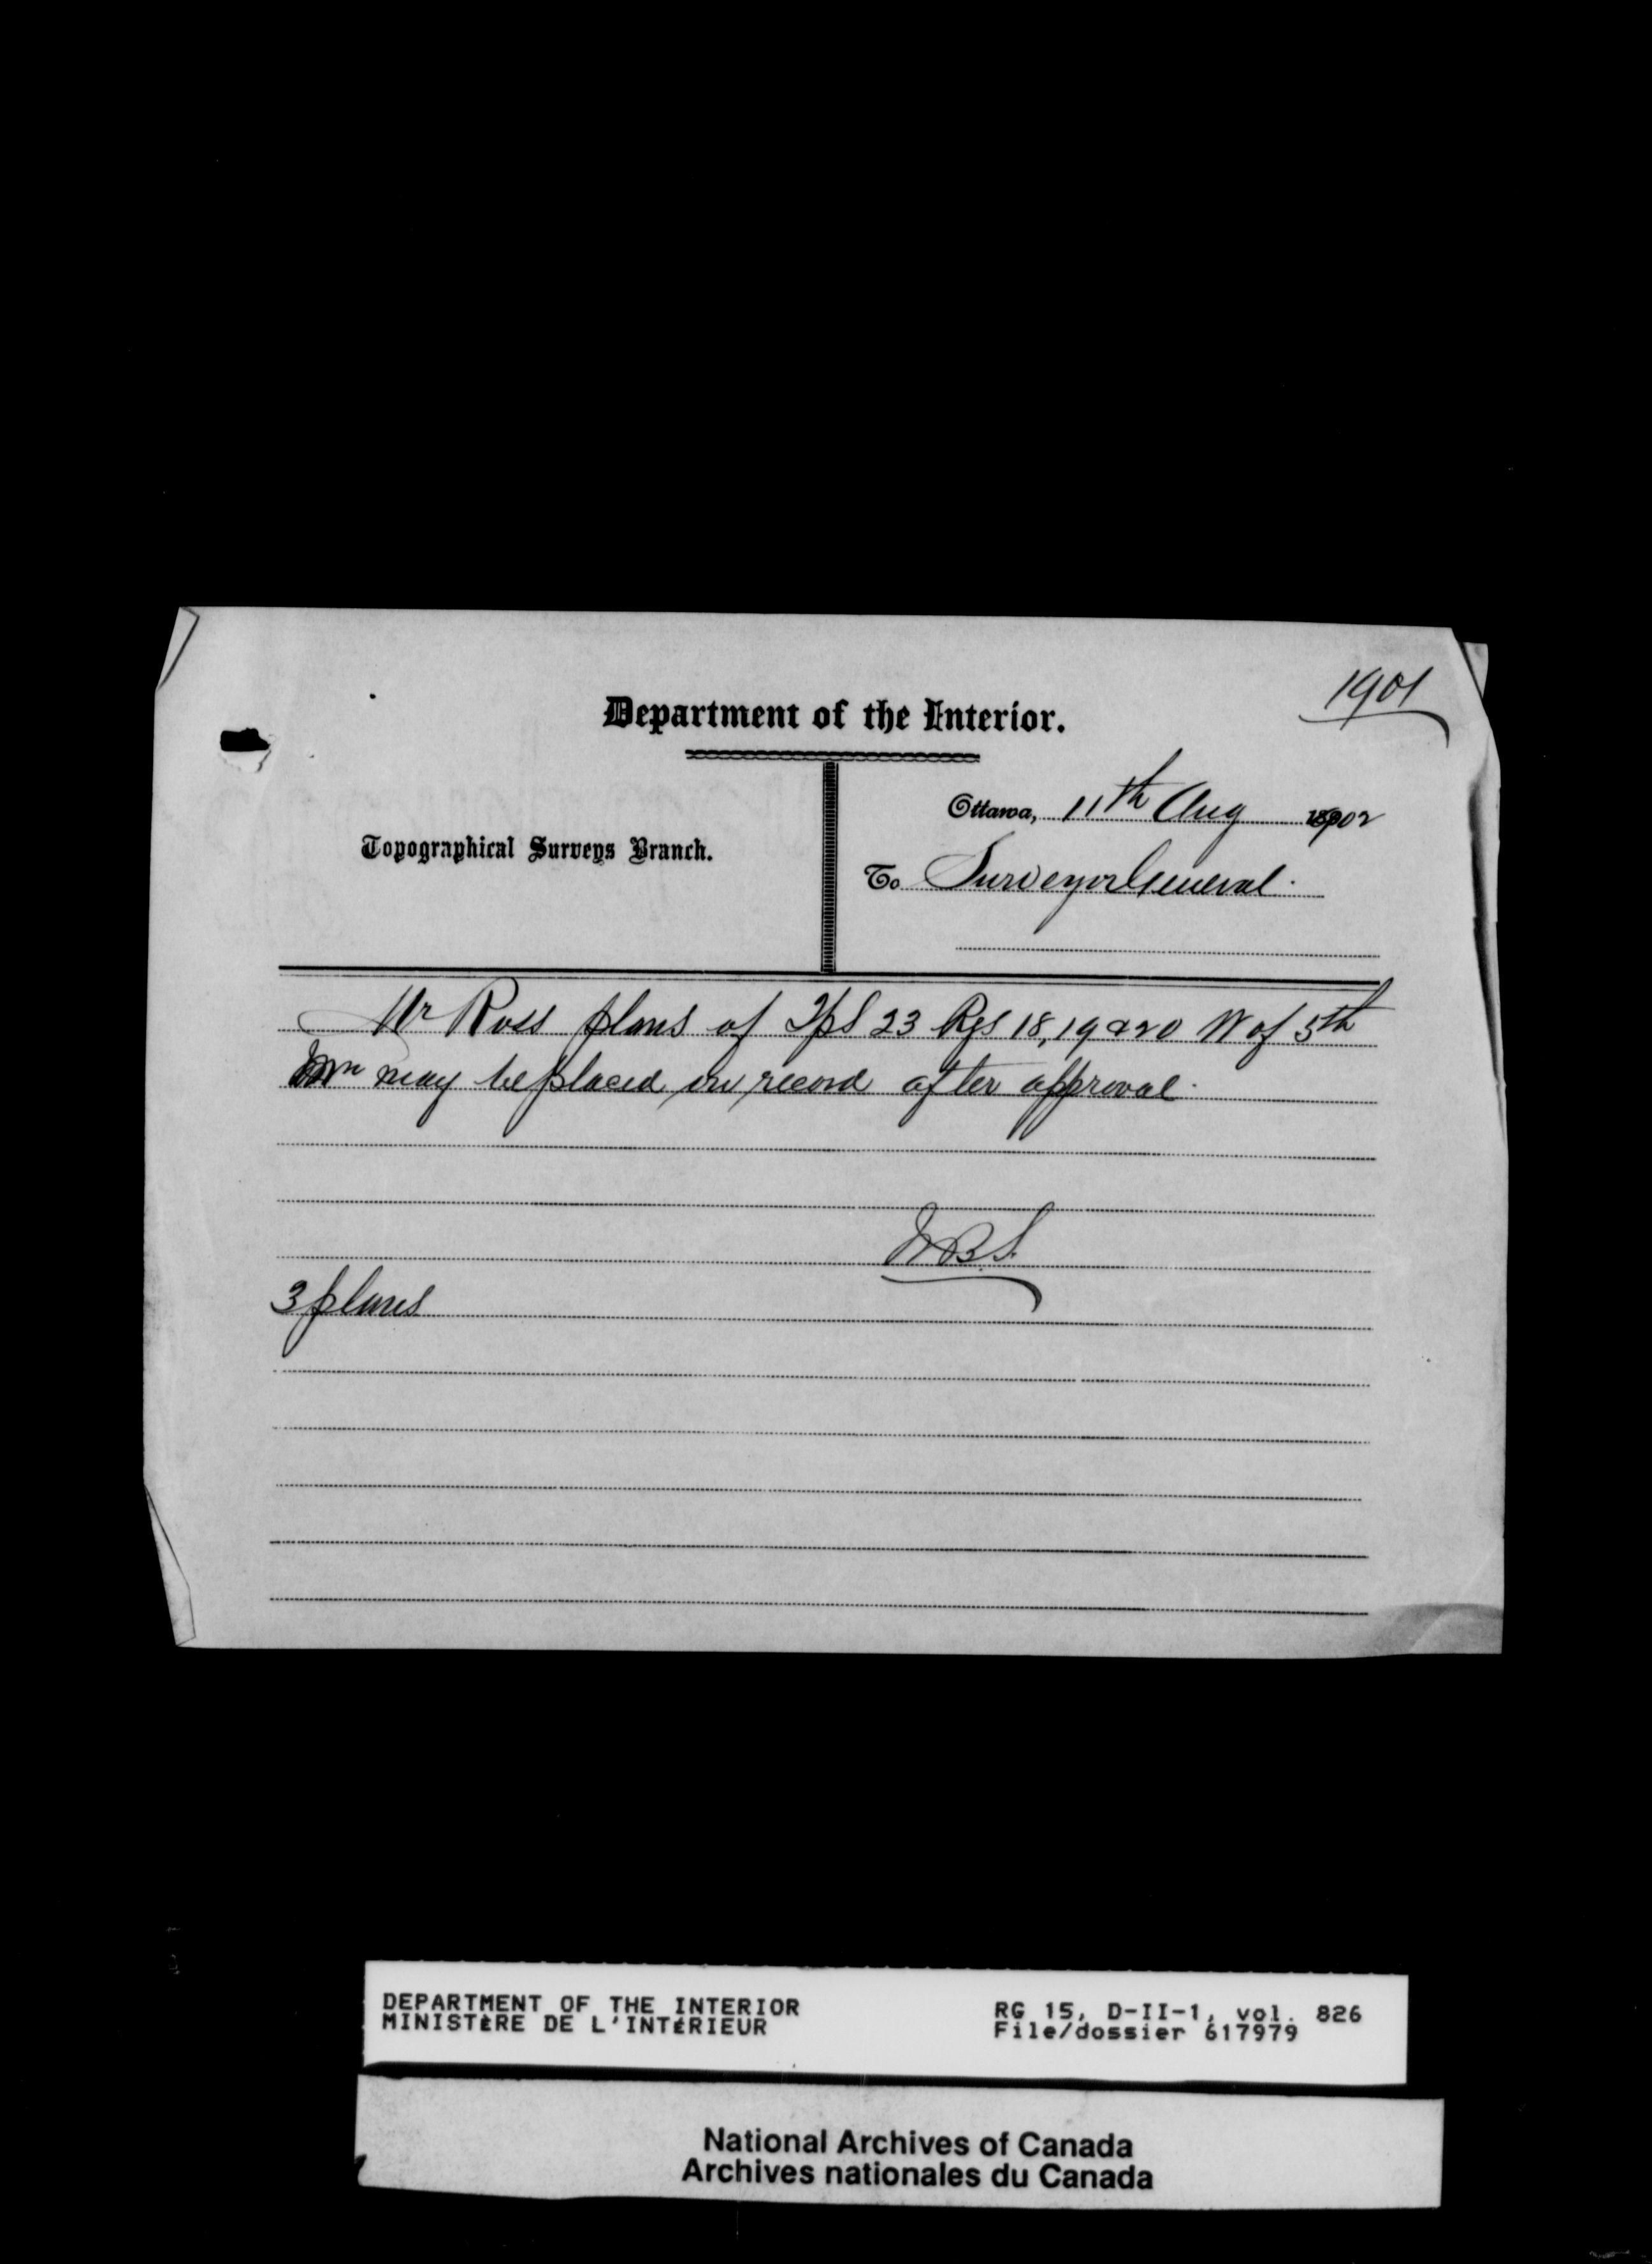 1901
Department of the Interior.
Ottawa, 11th Aug 1902
Topographical Surveys Branch.
To Surveyor General.
Mr Ross plans of Tps 23 Rgs 18, 19 & 20 W of 5th
may be placed on record after approval.
B.S.
3 plans
DEPARTMENT OF THE INTERIOR
MINISTÈRE DE L'INTÉRIEUR
RG 15, D-II-1, vol. 826
File/dossier 617979
National Archives of Canada
Archives nationales du Canada